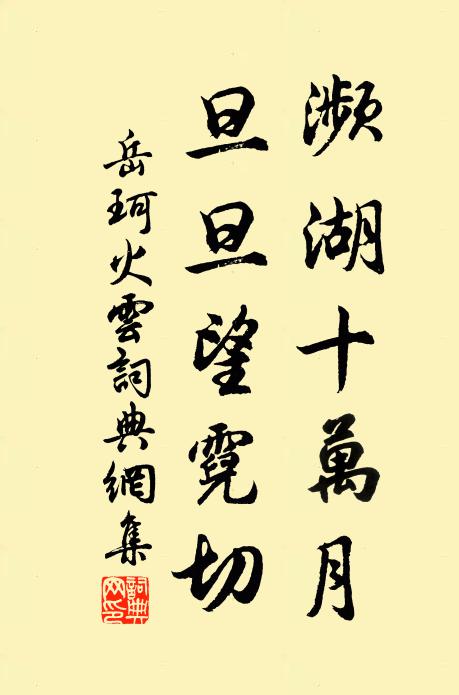 瀕湖十萬月
旦旦望霓切
岳珂火雲詞典網集
詞典網印